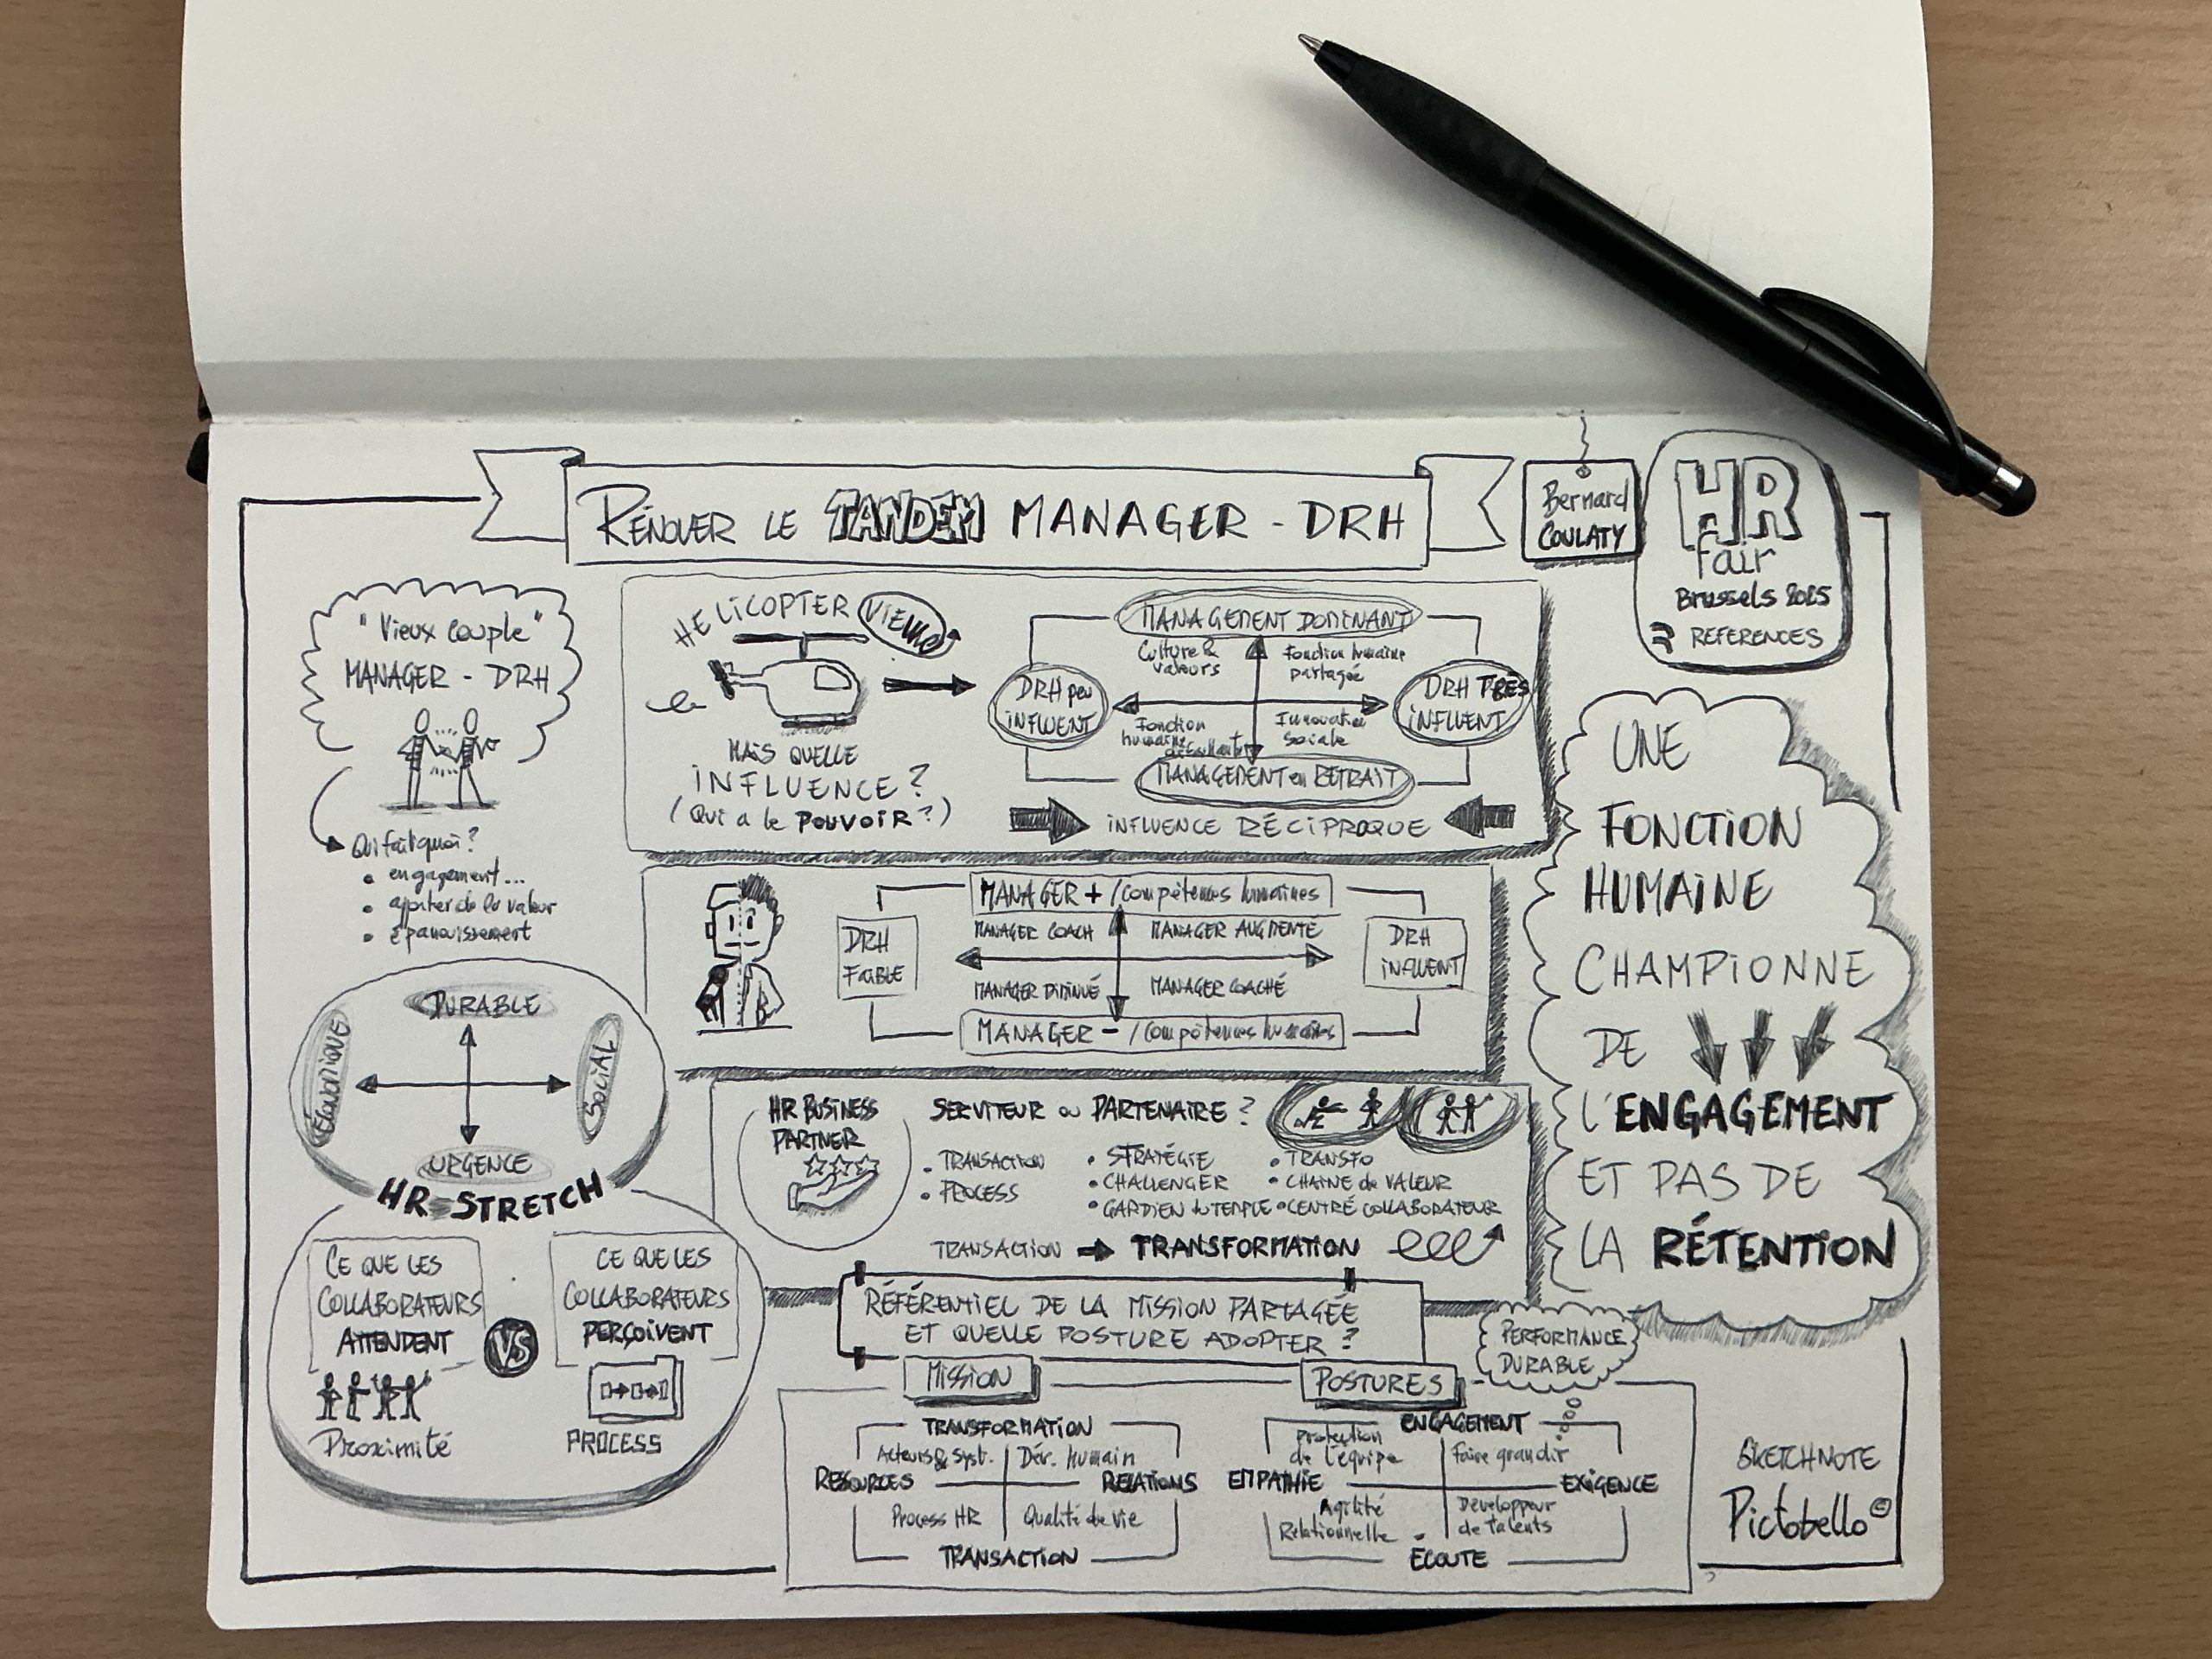 RÉNOVER LE TANDEM MANAGER - DRH
Bernard
COULATY
HR
fair
Brussels 2025
REFERENCES
"Vieux couple"
MANAGER - DRH
Qui fait quoi?
• engagement...
• ajouter de la valeur
• épanouissement
HELICOPTER VIEW
MAIS QUELLE
INFLUENCE?
(Qui a le POUVOIR?)
MANAGEMENT DOMINANT
Culture &
valeurs
Fonction humaine
partagée
DRH peu
INFLUENT
DRH TRÈS
INFLUENT
Fonction
humaine
défaillante
Innovation
Sociale
MANAGEMENT en RETRAIT
INFLUENCE RÉCIPROQUE
MANAGER + /compétences humaines
MANAGER COACH
MANAGER AUGMENTÉ
DRH
FAIBLE
DRH
INFLUENT
MANAGER DIMINUÉ
MANAGER COACHÉ
MANAGER - /compétences humaines
DURABLE
ÉCONOMIQUE
SOCIAL
URGENCE
HR STRETCH
CE QUE LES
COLLABORATEURS
ATTENDENT
Proximité
VS
CE QUE LES
COLLABORATEURS
PERÇOIVENT
PROCESS
HR BUSINESS
PARTNER
SERVITEUR ou PARTENAIRE?
• TRANSACTION
• PROCESS
• STRATÉGIE
• CHALLENGER
• GARDIEN du TEMPLE
• TRANSFO
• CHAINE de VALEUR
• CENTRÉ COLLABORATEUR
TRANSACTION TRANSFORMATION
RÉFÉRENTIEL DE LA MISSION PARTAGÉE
ET QUELLE POSTURE ADOPTER?
MISSION
TRANSFORMATION
Acteurs & Syst.
Dév. humain
RESOURCES
RELATIONS
Process HR
Qualité de vie
TRANSACTION
POSTURES
PERFORMANCE
DURABLE
ENGAGEMENT
Protection
de l'équipe
Faire grandir
EMPATHIE
EXIGENCE
Agilité
Relationnelle
Développeur
de talents
ÉCOUTE
UNE
FONCTION
HUMAINE
CHAMPIONNE
DE
L'ENGAGEMENT
ET PAS DE
LA RÉTENTION
SKETCHNOTE
Pictobello ©